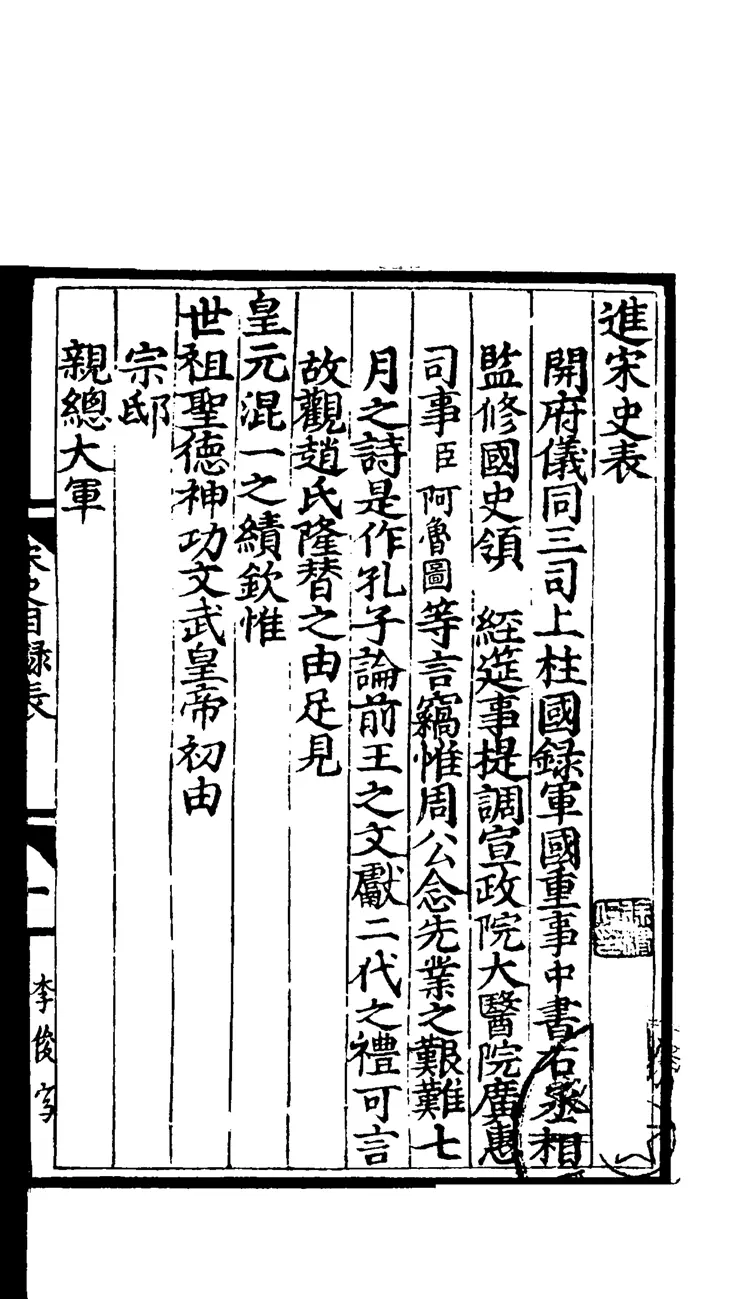 進宋史表
開府儀同三司上柱國録軍國重事中書右丞相
監修國史領　經筵事提調宣政院大醫院廣惠
司事臣阿魯圖等言竊惟周公念先業之艱難七
月之詩是作孔子論前王之文獻二代之禮可言
故觀趙氏隆替之由足見
皇元混一之績欽惟
世祖聖德神功文武皇帝初由
宗邸
親總大軍
宋史目録表
一
李俊寫